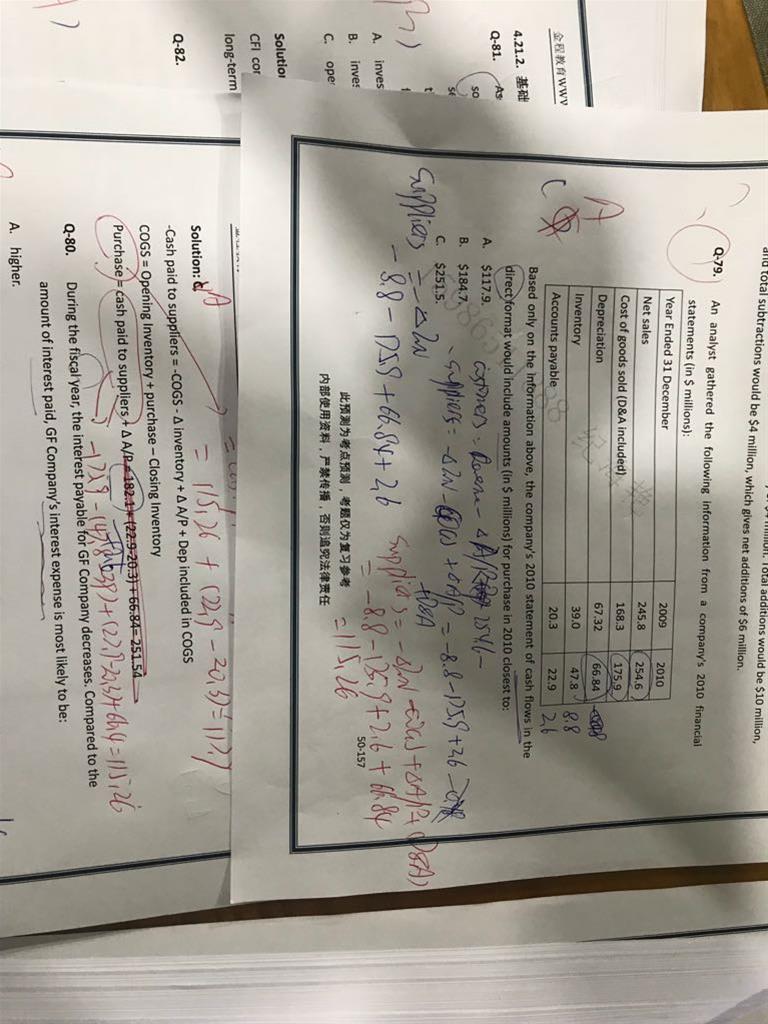 and total subtractions would be $4 million, which gives net additions of $6 million.
Total additions would be $10 million,
Q-79. An analyst gathered the following information from a company's 2010 financial
statements (in $ millions):
Year Ended 31 December 2009 2010
Net sales 245.8 254.6
Cost of goods sold (D&A included) 168.3 175.9
Depreciation 67.32 66.84
Inventory 39.0 47.8 8.8
Accounts payable 20.3 22.9 2.6
Based only on the information above, the company's 2010 statement of cash flows in the
direct format would include amounts (in $ millions) for purchase in 2010 closest to:
A
C
A. $117.9.
B. $184.7.
C. $251.5.
Suppliers = -ΔIN
- 8.8 - 175.9 + 66.84 + 2.6
Suppliers = -ΔIN - COGS + ΔA/P + (D&A)
= -8.8 - 175.9 + 2.6 + 66.84
= 115.26
此预测为考点预测，考题仅为复习参考
内部使用资料，严禁传播，否则追究法律责任
50-157
金程教育WWW
4.21.2. 基础
Q-81. As
so
A. inves
B. inves
C. oper
Solution
CFI cor
long-term
Q-82.
= 115.26 + (22.9 - 20.3) = 117.9
Solution: A
-Cash paid to suppliers = -COGS - Δ inventory + Δ A/P + Dep included in COGS
COGS = Opening Inventory + purchase – Closing Inventory
Purchase = cash paid to suppliers + Δ A/P = 182.1 + (22.9-20.3) + 66.84= 251.54
Q-80. During the fiscal year, the interest payable for GF Company decreases. Compared to the
amount of interest paid, GF Company's interest expense is most likely to be:
A. higher.